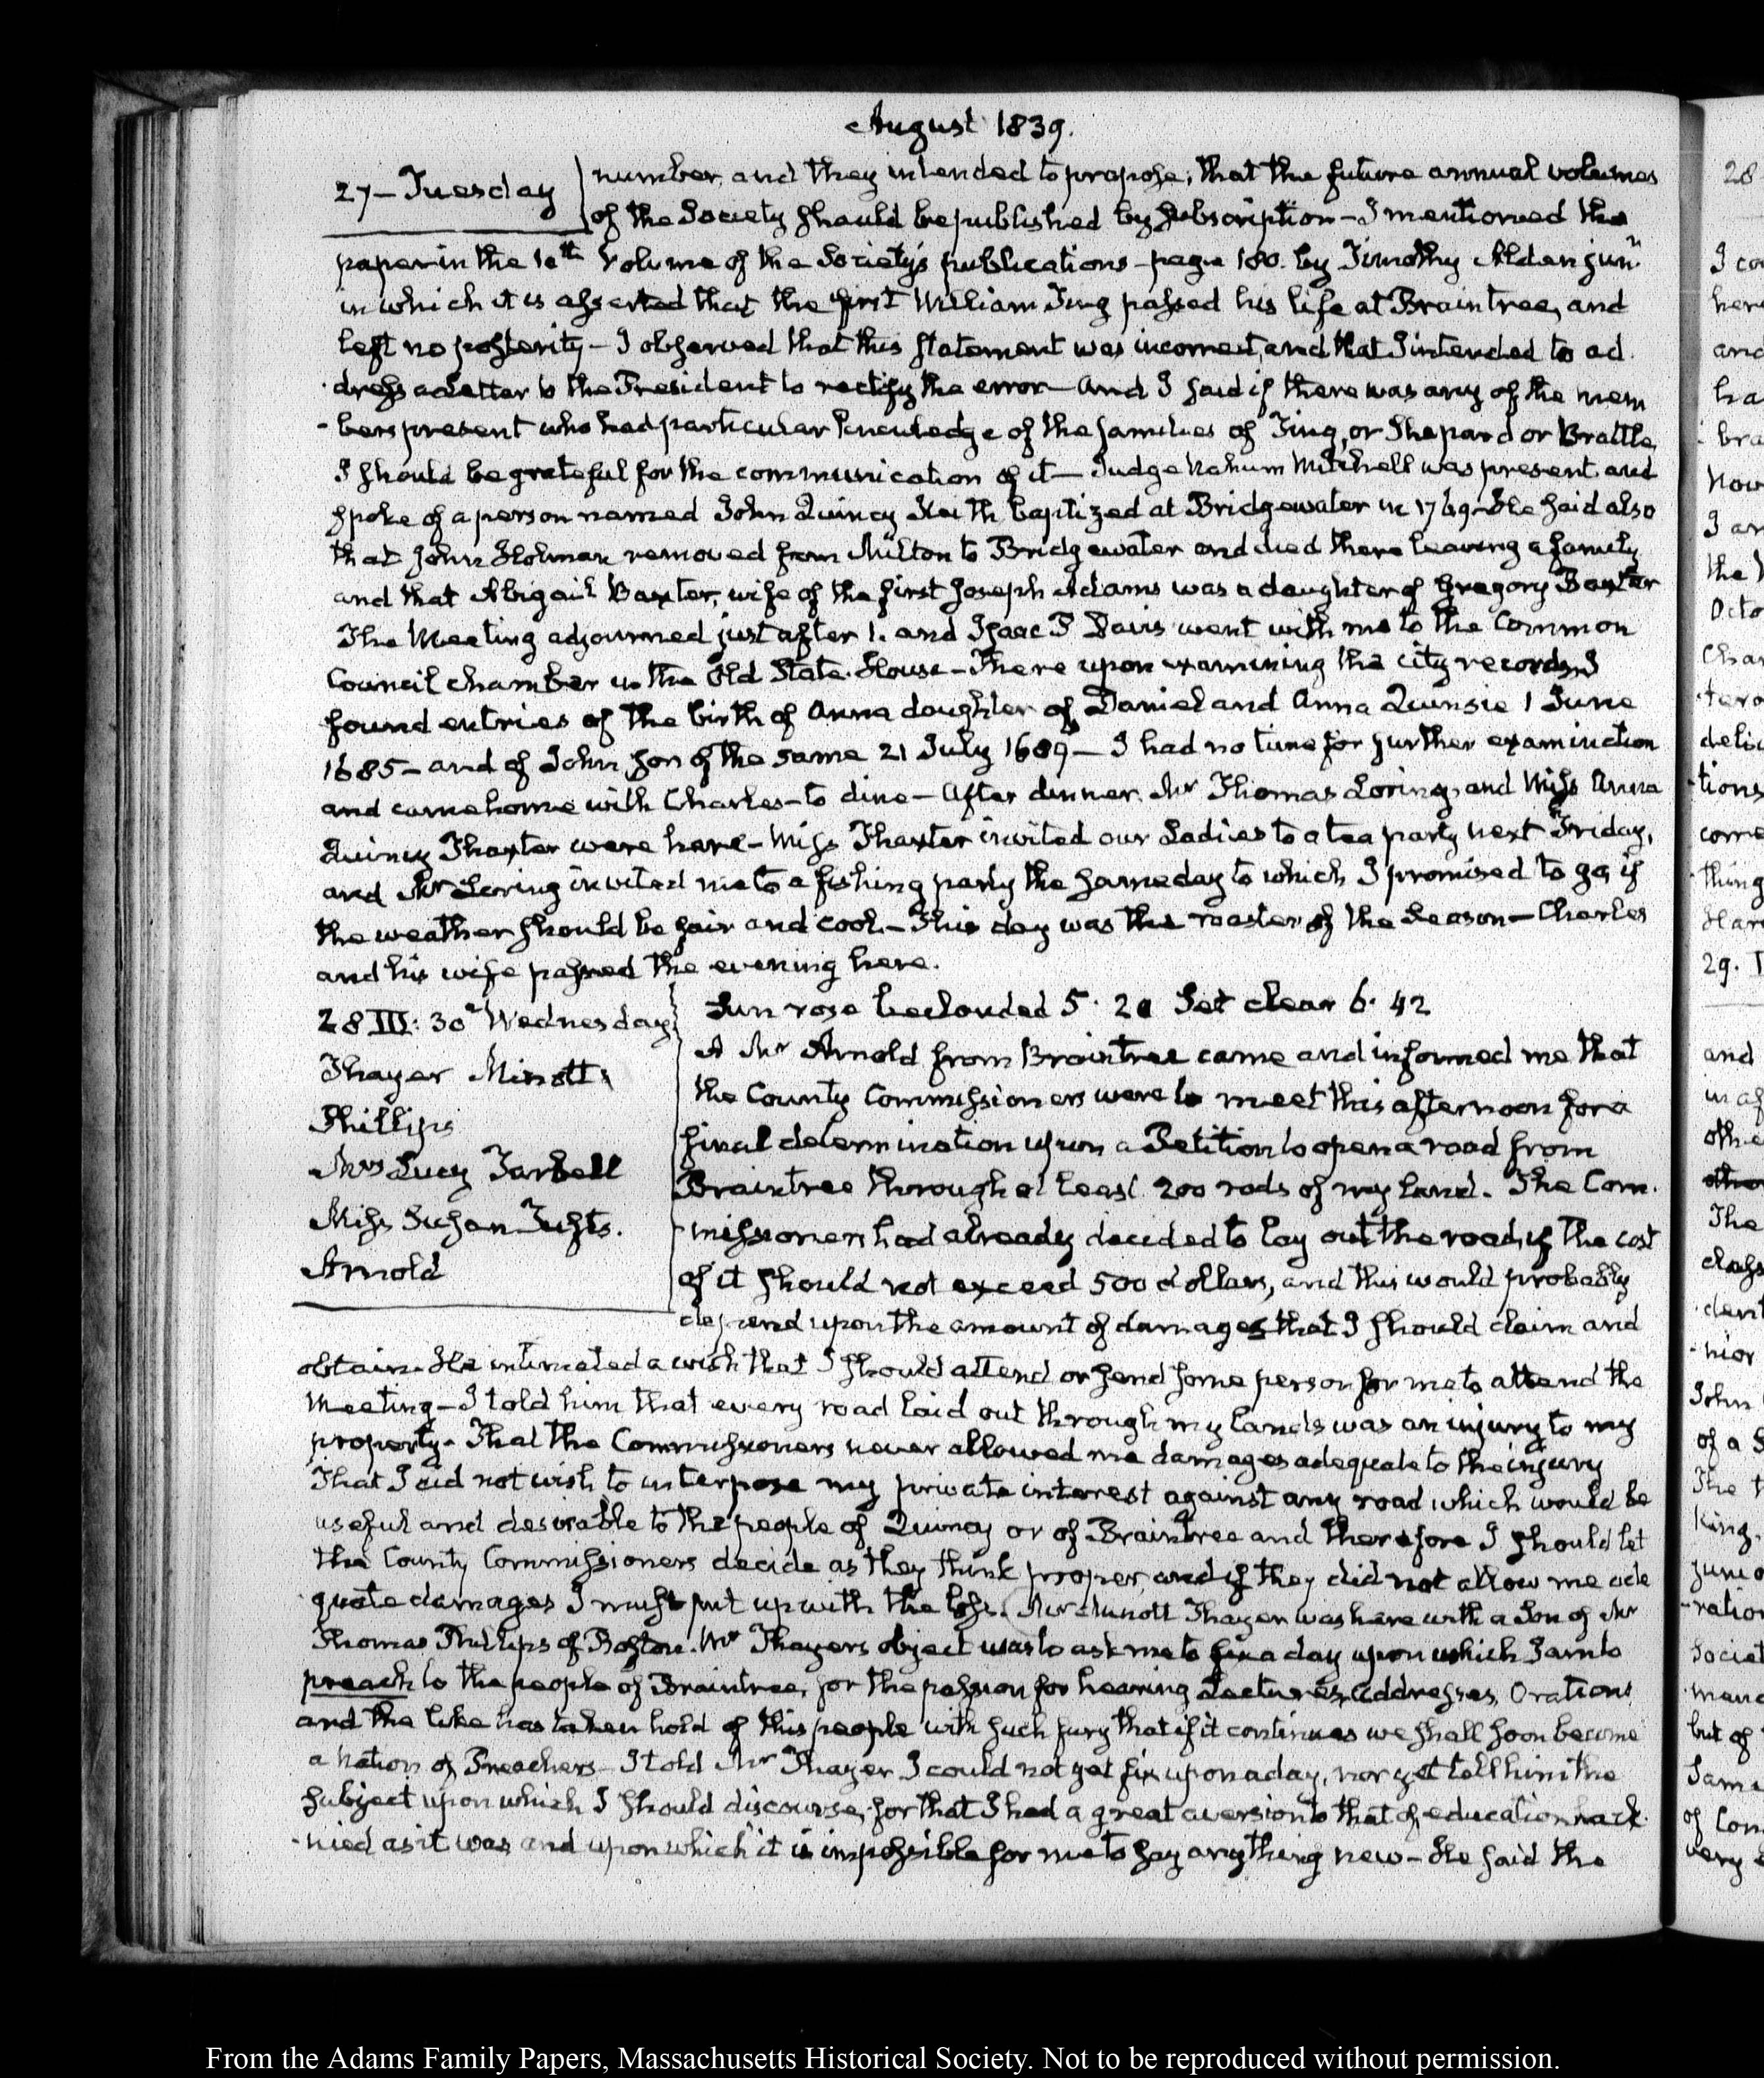 August 1839.
27 – Tuesday
number, and they intended to propose, that the future annual volumes
of the Society should be published by subscription – I mentioned the
paper in the 10th Volume of the Society's publications – page 180. by Timothy Alden junr
in which it is asserted that the first William Ting passed his life at Braintree, and
left no posterity – I observed that this statement was incorrect, and that I intended to ad
dress a Letter to the President to rectify the error – And I said if there was any of the mem
-bers present who had particular knowledge of the families of Ting, or Shepard or Brattle,
I should be grateful for the communication of it – Judge Nahum Mitchell was present and
spoke of a person named John Quincy Keith baptized at Bridgewater in 1769 – He said also
that John Holman removed from Milton to Bridgewater and died there leaving a family
and that Abigail Baxter, wife of the first Joseph Adams was a daughter of Gregory Baxter
The Meeting adjourned just after 1. and Isaac P Davis went with me to the Common
Council chamber in the Old State-House – There upon examining the city records, I
found entries of the birth of Anna daughter of Daniel and Anna Quinsie 1 June
1685 – and of John, son of the same 21 July 1689 – I had no time for further examination
and came home with Charles – to dine – After dinner, Mr Thomas Loring, and Miss Anna
Quincy Thaxter were here – Miss Thaxter invited our Ladies to a tea party next Friday,
and Mr Loring invited me to a fishing party the same day to which I promised to go, if
the weather should be fair and cool. – This day was the roaster of the Season – Charles
and his wife passed the evening here.
28 III: 30. Wednesday
Thayer Minott
Phillips
Mrs Lucy Tarbell
Miss Susan Tufts.
Arnold
Sun rose beclouded 5. 20 Set clear 6. 42
A Mr Arnold from Braintree came and informed me that
the County Commissioners were to meet this afternoon for a
final determination upon a Petition to open a road from
Braintree through at least 200 rods of my land. The Com
-missioners had already decided to lay out the road, if the cost
of it should not exceed 500 dollars, and this would probably
depend upon the amount of damages that I should claim and
obtain. He intimated a wish that I should attend or send some person for me to attend the
Meeting – I told him that every road laid out through my lands was an injury to my
property. That the Commissioners never allowed me damages adequate to the injury
That I did not wish to interpose my private interest against any road which would be
useful and desirable to the people of Quincy or of Braintree and therefore I should let
the County Commissioners decide as they think proper, and if they did not allow me ade
quate damages I must put up with the loss. Mr Minott Thayer was here with a Son of Mr
Thomas Phillips of Boston. Mr Thayers object was to ask me to fix a day upon which I am to
preach to the people of Braintree, for the passion for hearing Lectures, addresses, Orations
and the like has taken hold of this people with such fury that if it continues we shall soon become
a nation of Preachers – I told Mr Thayer I could not yet fix upon a day, nor yet tell him the
subject upon which I should discourse, for that I had a great aversion to that of education hack
-nied as it was and upon which it is impossible for me to say any thing new – He said the
28
I co
here
and
ha
bra
Now
I an
the
Octo
Char
ters
deli
tions
come
thing
Har
29. T
and
in af
othe
The
class
dent
nior
John
of a S
The t
King.
junio
ration
Societ
but of
Sam
of Con
very
From the Adams Family Papers, Massachusetts Historical Society. Not to be reproduced without permission.